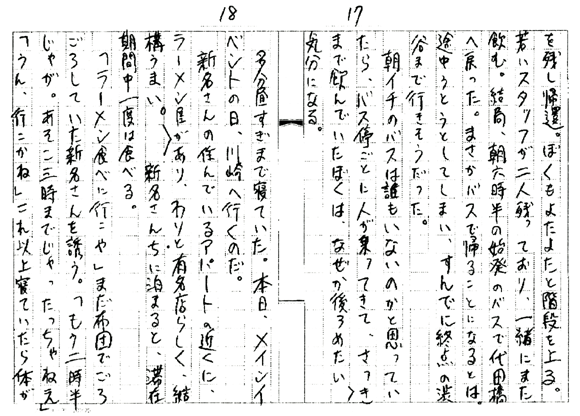 17
を残し帰還。ぼくもよたよたと階段を上る。
若いスタッフが二人残っており、一緒にまた
飲む。結局、朝六時半の始発のバスで代田橋
へ戻った。まさかバスで帰ることになるとは。
途中うとうとしてしまい、すんでに終点の渋
谷まで行きそうだった。
朝イチのバスは誰もいないのかと思ってい
たら、バス停ごとに人が乗ってきて、さっき
まで飲んでいたぼくは、なぜか後ろめたい
気分になる。
18
多分昼すぎまで寝ていた。本日、メインイ
ベントの日、川崎へ行くのだ。
新名さんの住んでいるアパートの近くに、
ラーメン屋があり、わりと有名店らしく、結
構うまい。新名さんちに泊まると、滞在
期間中一度は食べる。
「ラーメン食べに行こや」まだ布団でごろ
ごろしていた新名さんを誘う。「もう二時半
じゃが。あそこ三時までじゃったっちゃねえ」
「うん、行こかね」これ以上寝ていたら体が